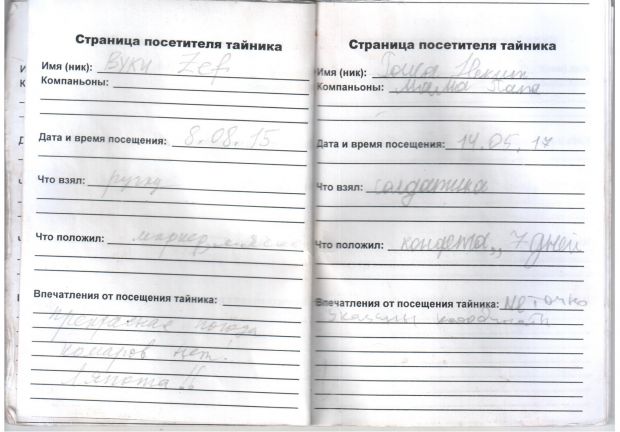 Страница посетителя тайника
Имя (ник): Вуки Zef
Компаньоны:
Дата и время посещения: 8.08.15
Что взял: ручку
Что положил: маркер,
Впечатления от посещения тайника:
прекрасная погода
комаров нет!
Ляпота!!
Страница посетителя тайника
Имя (ник):
Компаньоны: Мама Папа
Дата и время посещения: 14.05.17
Что взял: солдатика
Что положил: конфета „7 дней
Впечатления от посещения тайника: не точно
указаны координаты